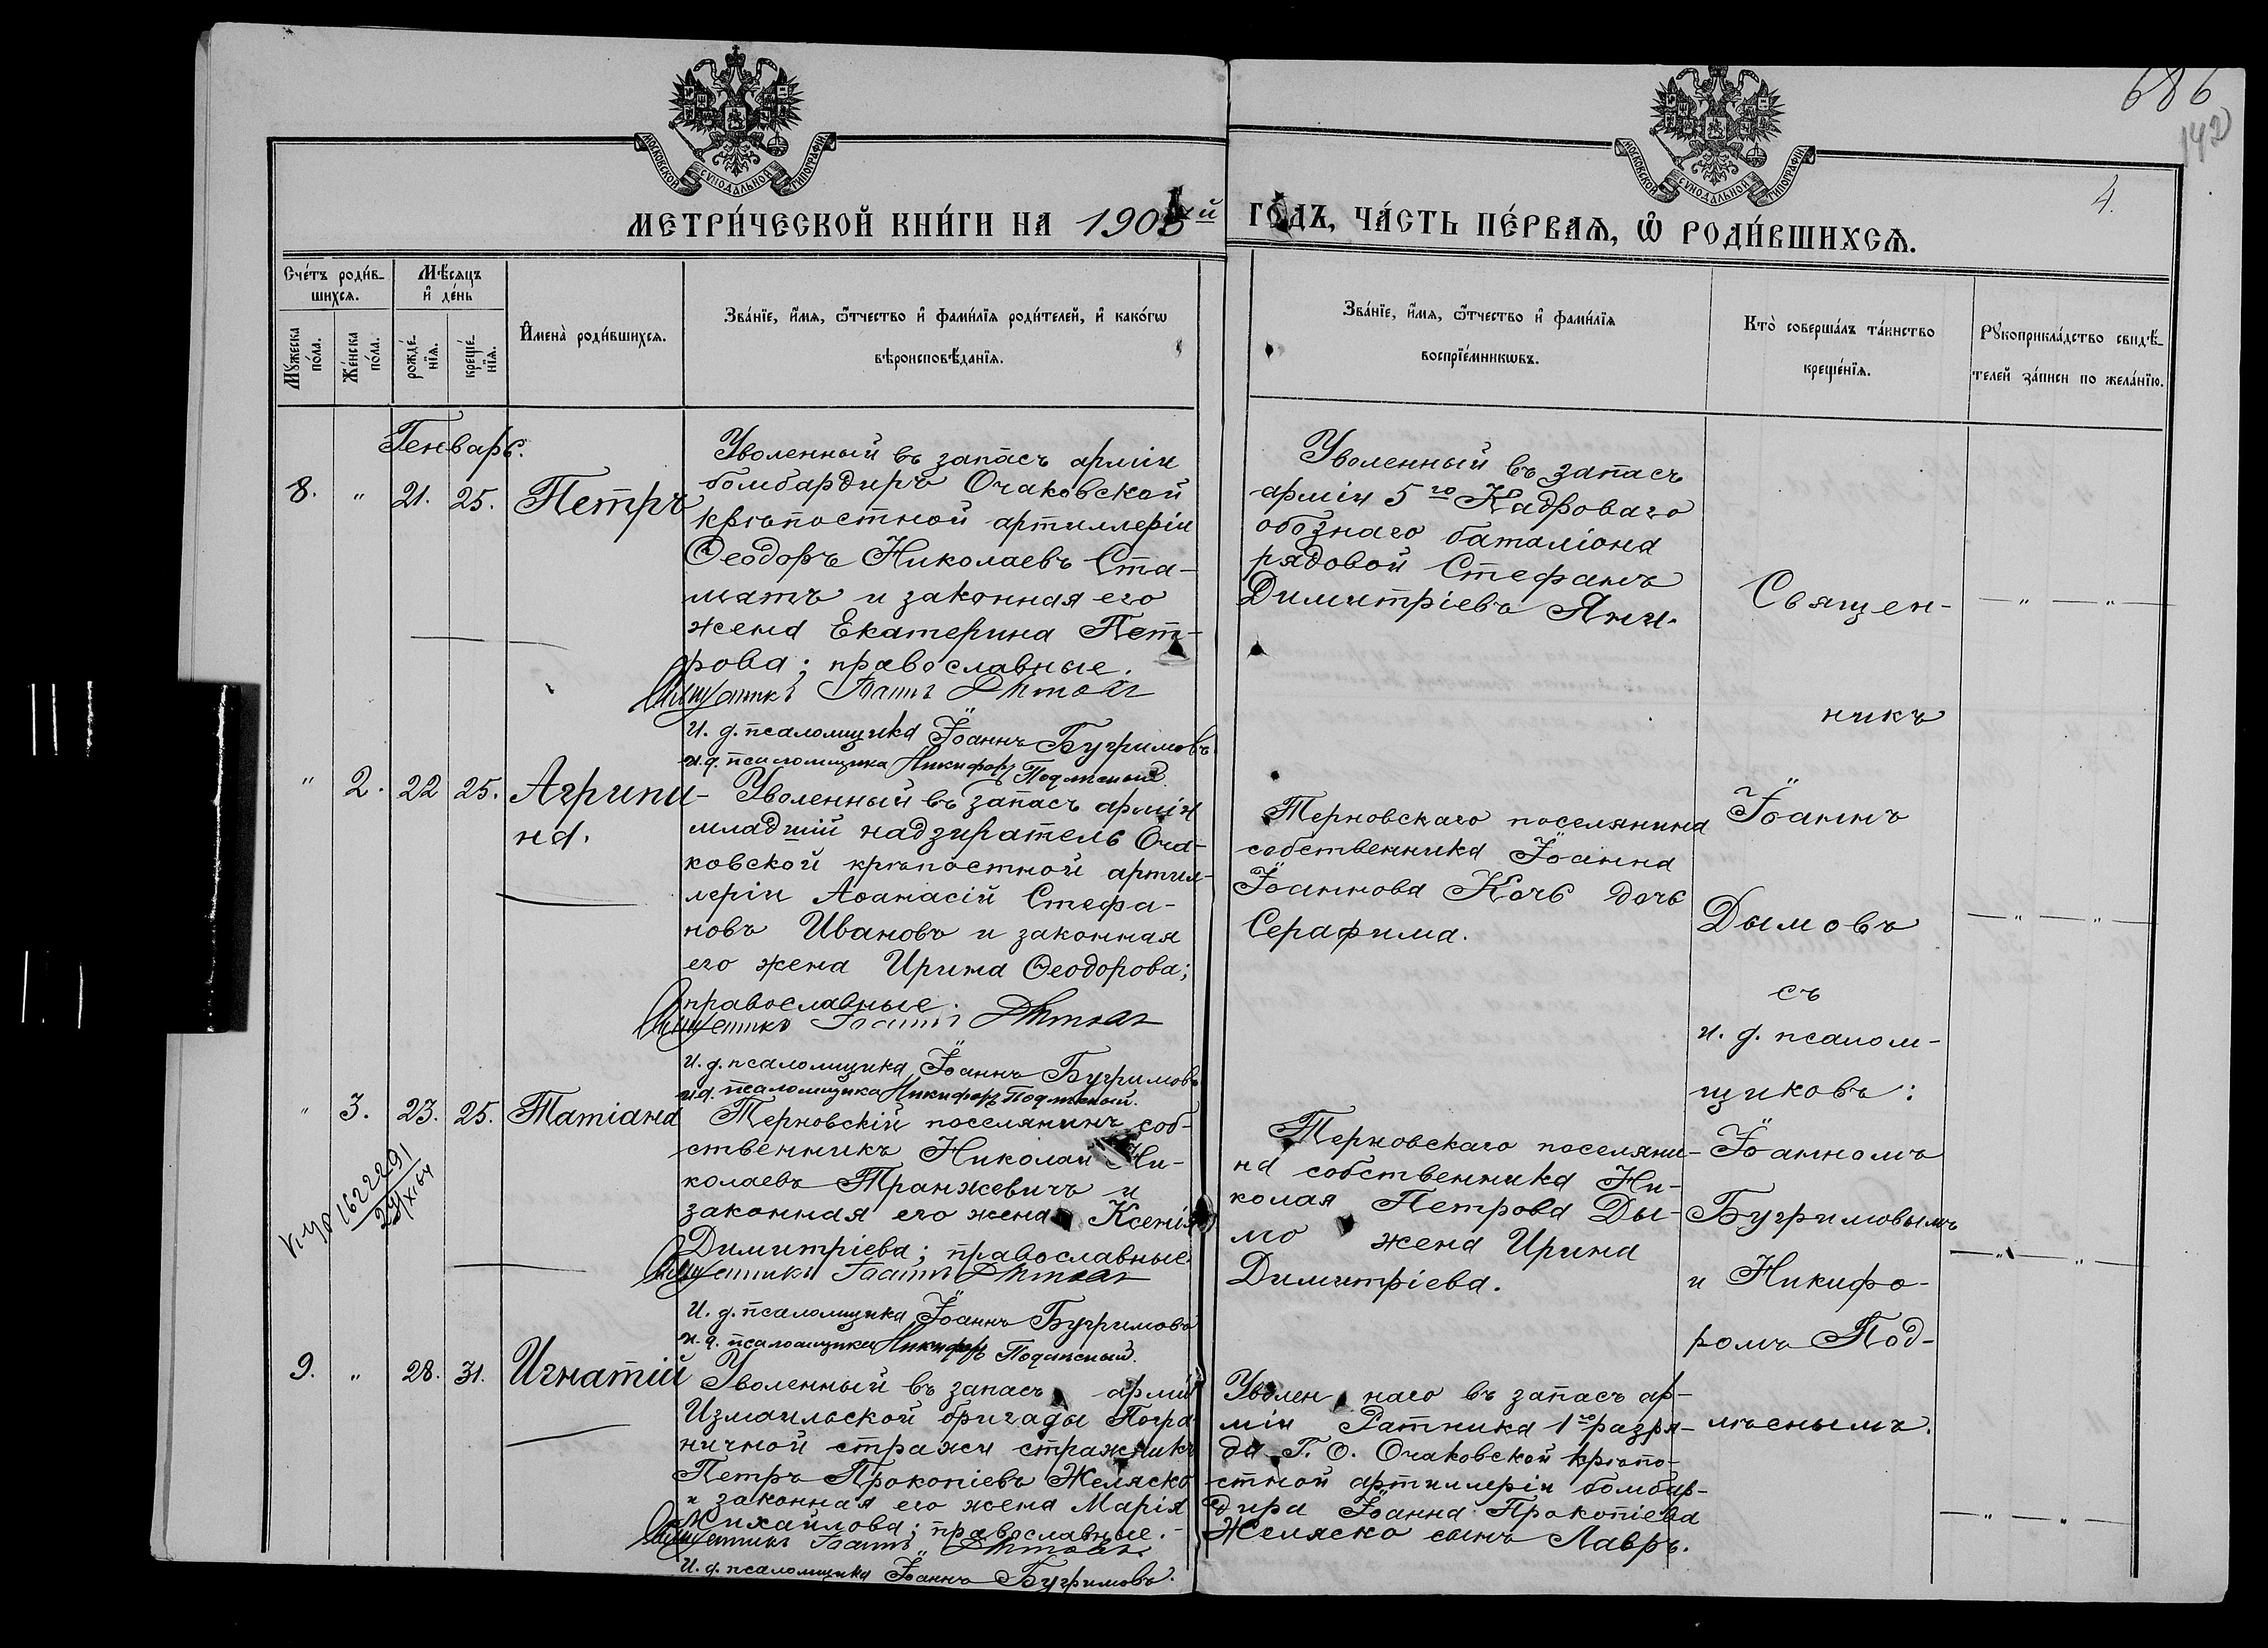 686
142
4.
МОСКОВСКОЙ СѴНОДАЛЬНОЙ ТИПОГРАФІИ
МОСКОВСКОЙ СѴНОДАЛЬНОЙ ТИПОГРАФІИ
МЕТРИ́ЧЕСКОЙ КНИ́ГИ НА 190 й ГО́ДЪ, ЧА́СТЬ ПЕ́РВАѦ, Ѽ РОДИ́ВШИХСѦ.
Сче́тъ роди́в-
шихсѧ.
Мꙋ́жеска
по́ла.
Же́нска
по́ла.
Мѣ́сѧцъ
и҆ де́нь
рожде́-
нїѧ.
креще́-
нїѧ.
И҆мена̀ роди́вшихсѧ.
Зва́нїе, и҆́мѧ, ѻ҆́тчество и҆ фами́лїѧ роди́телей, и҆ како́гѡ
вѣроисповѣ́данїѧ.
Зва́нїе, и҆́мѧ, ѻ҆́тчество и҆ фами́лїѧ
воспрїе́мникѡвъ.
Кто̀ соверша́лъ та́инство
креще́нїѧ.
Рꙋкоприкла́дство свидѣ́-
телей за́писи по жела́нїю.
Генварь.
8. " 21. 25. Петръ
Уволенный въ запасъ арміи
бомбардиръ Очаковской
крѣпостной артиллеріи
Ѳеодоръ Николаевъ Ста-
матъ и законная его
жена Екатерина Пет-
рова; православные.
Священникъ Іоаннъ Дымовъ
И. д. псаломщика Іоаннъ Бугримовъ
и. д. псаломщика Никифоръ Подлѣсный.
Уволенный въ запасъ
арміи 5го Кадроваго
обознаго баталіона
рядовой Стефанъ
Димитріевъ Яни.
" 2. 22 25. Агрипи-
на.
Уволенный въ запасъ арміи
младшій надзиратель Оча-
ковской крѣпостной артил-
леріи Аѳанасій Стефа-
новъ Ивановъ и законная
его жена Ирина Ѳеодорова;
православные.
Священникъ Іоаннъ Дымовъ
И. д. псаломщика Іоаннъ Бугримовъ
и. д. псаломщика Никифоръ Подлѣсный.
Терновскаго поселянина
собственника Іоанна
Іоаннова Кочь дочь
Серафима.
" 3. 23. 25. Татіана
Терновскій поселянинъ соб-
ственникъ Николай Ни-
колаевъ Транжевичъ и
законная его жена Ксенія
Димитріева; православные.
Священникъ Іоаннъ Дымовъ
И. д. псаломщика Іоаннъ Бугримовъ
и. д. псаломщика Никифоръ Подлѣсный.
Терновскаго поселяни-
на собственника Ни-
колая Петрова Ды-
мо жена Ирина
Димитріева.
1622291
9. " 28. 31. Игнатій
Уволенный въ запасъ арміи
Измаильской бригады Погра-
ничной стражи стражникъ
Петръ Прокопіевъ Желяско
и законная его жена Марія
Михайлова; православные.
Священникъ Іоаннъ Дымовъ.
И. д. псаломщика Іоаннъ Бугримовъ.
Уволеннаго въ запасъ ар-
міи Ратника 1го разря-
да Г. О. Очаковской крѣпо-
стной артиллеріи бомбар-
дира Іоанна Прокопіева
Желяско сынъ Лавръ.
Священ-
никъ
Іоаннъ
Дымовъ
съ
и. д. псалом-
щиковъ:
Іоанномъ
Бугримовымъ
и Никифо-
ромъ Под-
лѣснымъ.